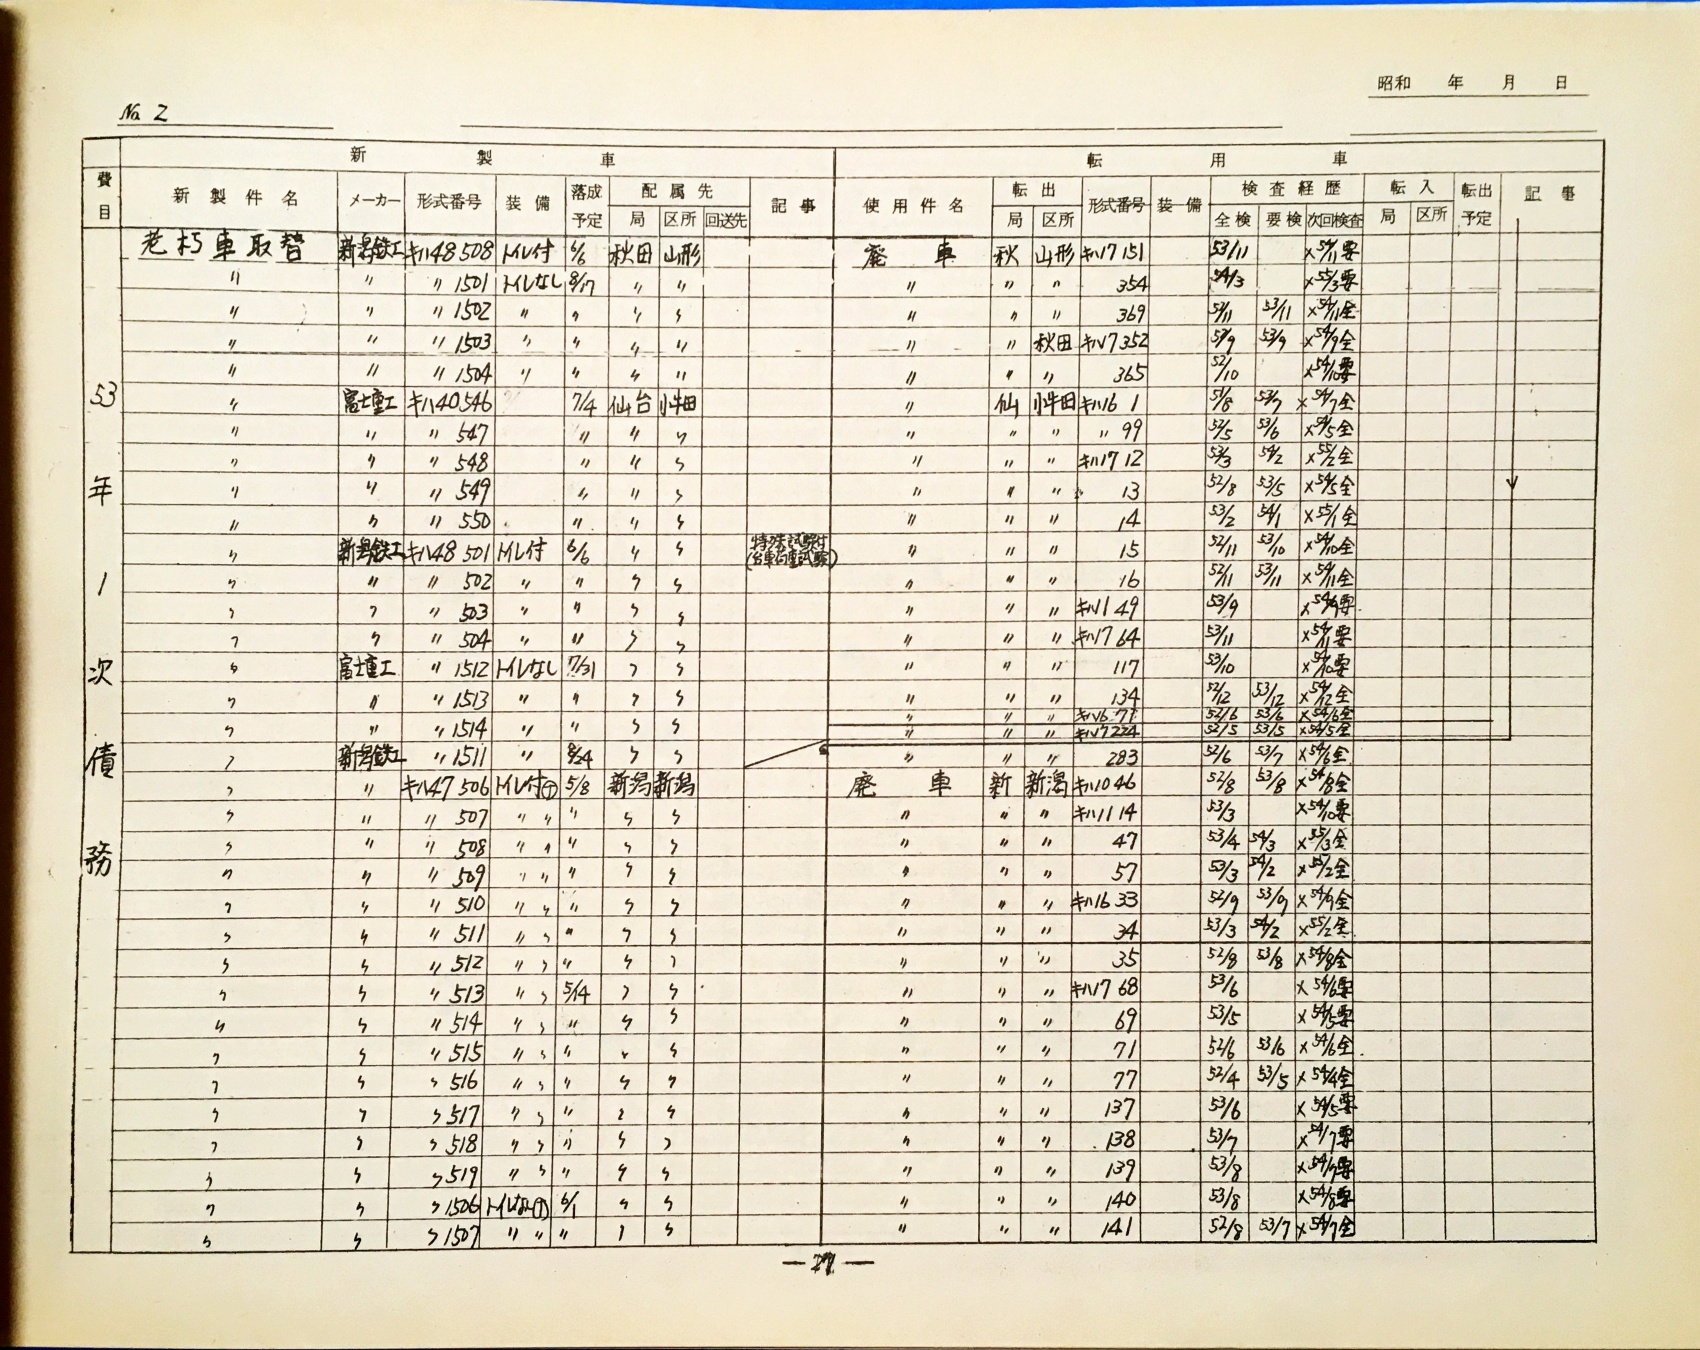 昭和 年 月 日
No. 2
新製車 転用車
費目 新製件名 メーカー 形式番号 装備 落成予定 配属先 局 区所 回送先 記事 使用件名 転出 局 区所 形式番号 装備 検査経歴 全検 要検 次回検査 転入 局 区所 転出予定 記事
53年1次債務
老朽車取替 新潟鉄工 キハ48 508 トイレ付 6/6 秋田 山形 廃車 秋 山形 キハ17 151 53/11 ×54/11要
〃 〃 〃 1501 トイレなし 8/17 〃 〃 〃 〃 〃 354 54/3 ×55/3要
〃 〃 〃 1502 〃 〃 〃 〃 〃 〃 〃 369 52/11 53/11 ×54/11全
〃 〃 〃 1503 〃 〃 〃 〃 〃 〃 秋田 キハ17 352 52/9 53/9 ×54/9全
〃 〃 〃 1504 〃 〃 〃 〃 〃 〃 〃 365 52/10 ×54/10要
〃 富士重工 キハ40 546 7/4 仙台 小牛田 〃 仙 小牛田 キハ16 1 51/8 53/7 ×54/7全
〃 〃 〃 547 〃 〃 〃 〃 〃 〃 〃 99 52/5 53/6 ×54/5全
〃 〃 〃 548 〃 〃 〃 〃 〃 〃 キハ17 12 53/3 54/2 ×55/2全
〃 〃 〃 549 〃 〃 〃 〃 〃 〃 13 52/8 53/5 ×54/5全
〃 〃 〃 550 〃 〃 〃 〃 〃 〃 14 53/2 54/1 ×55/1全
〃 新潟鉄工 キハ48 501 トイレ付 6/6 〃 〃 特殊試験付(台車荷重試験) 〃 〃 〃 15 52/11 53/10 ×54/10全
〃 〃 〃 502 〃 〃 〃 〃 〃 〃 〃 16 52/11 53/11 ×54/11全
〃 〃 〃 503 〃 〃 〃 〃 〃 〃 〃 キハ1 49 53/9 ×54/9要
〃 〃 〃 504 〃 〃 〃 〃 〃 〃 〃 キハ17 64 53/11 ×54/11要
〃 富士重工 〃 1512 トイレなし 7/31 〃 〃 〃 〃 〃 117 53/10 ×54/10要
〃 〃 〃 1513 〃 〃 〃 〃 〃 〃 〃 134 52/12 53/12 ×54/12全
〃 〃 〃 1514 〃 〃 〃 〃 〃 〃 〃 キハ16 71 52/6 53/6 ×54/6全
〃 〃 〃 キハ17 224 52/5 53/5 ×54/5全
〃 新潟鉄工 〃 1511 〃 8/24 〃 〃 〃 〃 〃 283 52/6 53/7 ×54/6全
〃 〃 キハ47 506 トイレ付(T) 5/8 新潟 新潟 廃車 新 新潟 キハ10 46 52/8 53/8 ×54/8全
〃 〃 〃 507 〃 〃 〃 〃 〃 〃 〃 〃 キハ11 14 53/3 ×54/10要
〃 〃 〃 508 〃 〃 〃 〃 〃 〃 〃 〃 47 53/4 54/3 ×55/3全
〃 〃 〃 509 〃 〃 〃 〃 〃 〃 〃 〃 57 53/3 54/2 ×55/2全
〃 〃 〃 510 〃 〃 〃 〃 〃 〃 〃 〃 キハ16 33 52/9 53/9 ×54/9全
〃 〃 〃 511 〃 〃 〃 〃 〃 〃 〃 〃 34 53/3 54/2 ×55/2全
〃 〃 〃 512 〃 〃 〃 〃 〃 〃 〃 〃 35 52/8 53/8 ×54/8全
〃 〃 〃 513 〃 〃 5/14 〃 〃 〃 〃 〃 キハ17 68 53/6 ×54/6要
〃 〃 〃 514 〃 〃 〃 〃 〃 〃 〃 〃 69 53/5 ×54/5要
〃 〃 〃 515 〃 〃 〃 〃 〃 〃 〃 〃 71 52/6 53/6 ×54/6全
〃 〃 〃 516 〃 〃 〃 〃 〃 〃 〃 〃 77 52/4 53/5 ×54/4全
〃 〃 〃 517 〃 〃 〃 〃 〃 〃 〃 〃 137 53/6 ×54/5要
〃 〃 〃 518 〃 〃 〃 〃 〃 〃 〃 〃 138 53/7 ×54/7要
〃 〃 〃 519 〃 〃 〃 〃 〃 〃 〃 〃 139 53/8 ×54/7要
〃 〃 〃 1506 トイレなし(T) 6/1 〃 〃 〃 〃 〃 140 53/8 ×54/8要
〃 〃 〃 1507 〃 〃 〃 〃 〃 〃 〃 〃 141 52/8 53/7 ×54/7全